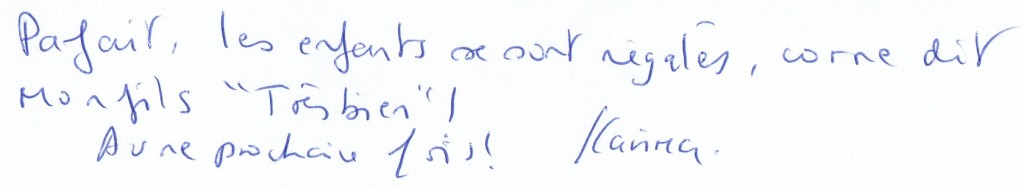 Parfait, les enfants se sont régalés, comme dit
Mon fils "Très bien" !
A une prochaine fois ! Karima.